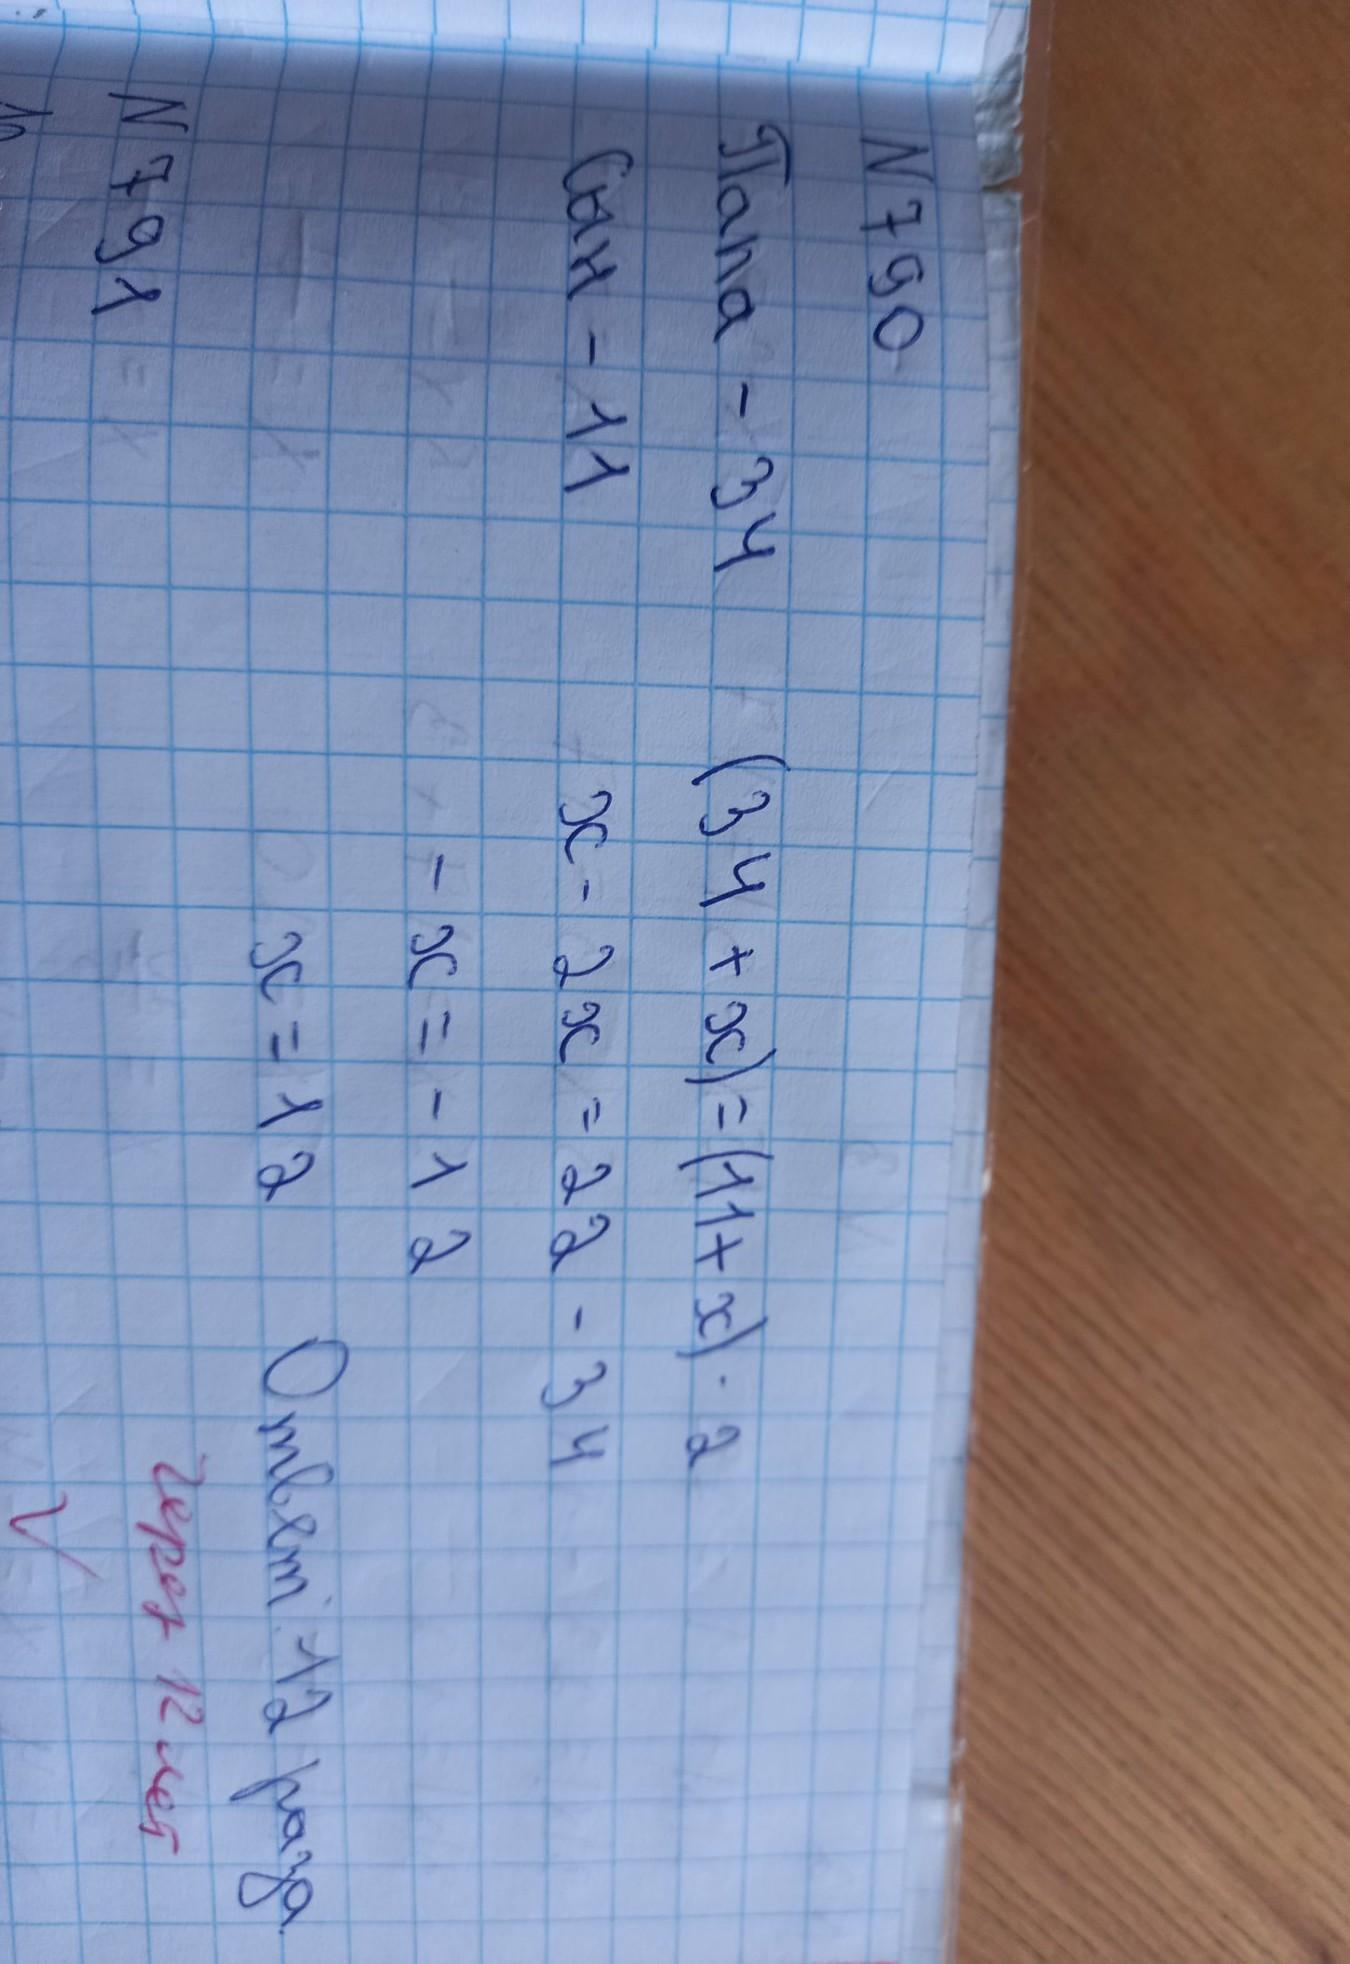 N 790
Папа - 34 (34 + x) = (11 + x) · 2
Сын - 11 x - 2x = 22 - 34
- x = - 12
x = 12 Ответ: 12 раза
через 12 лет
N 791